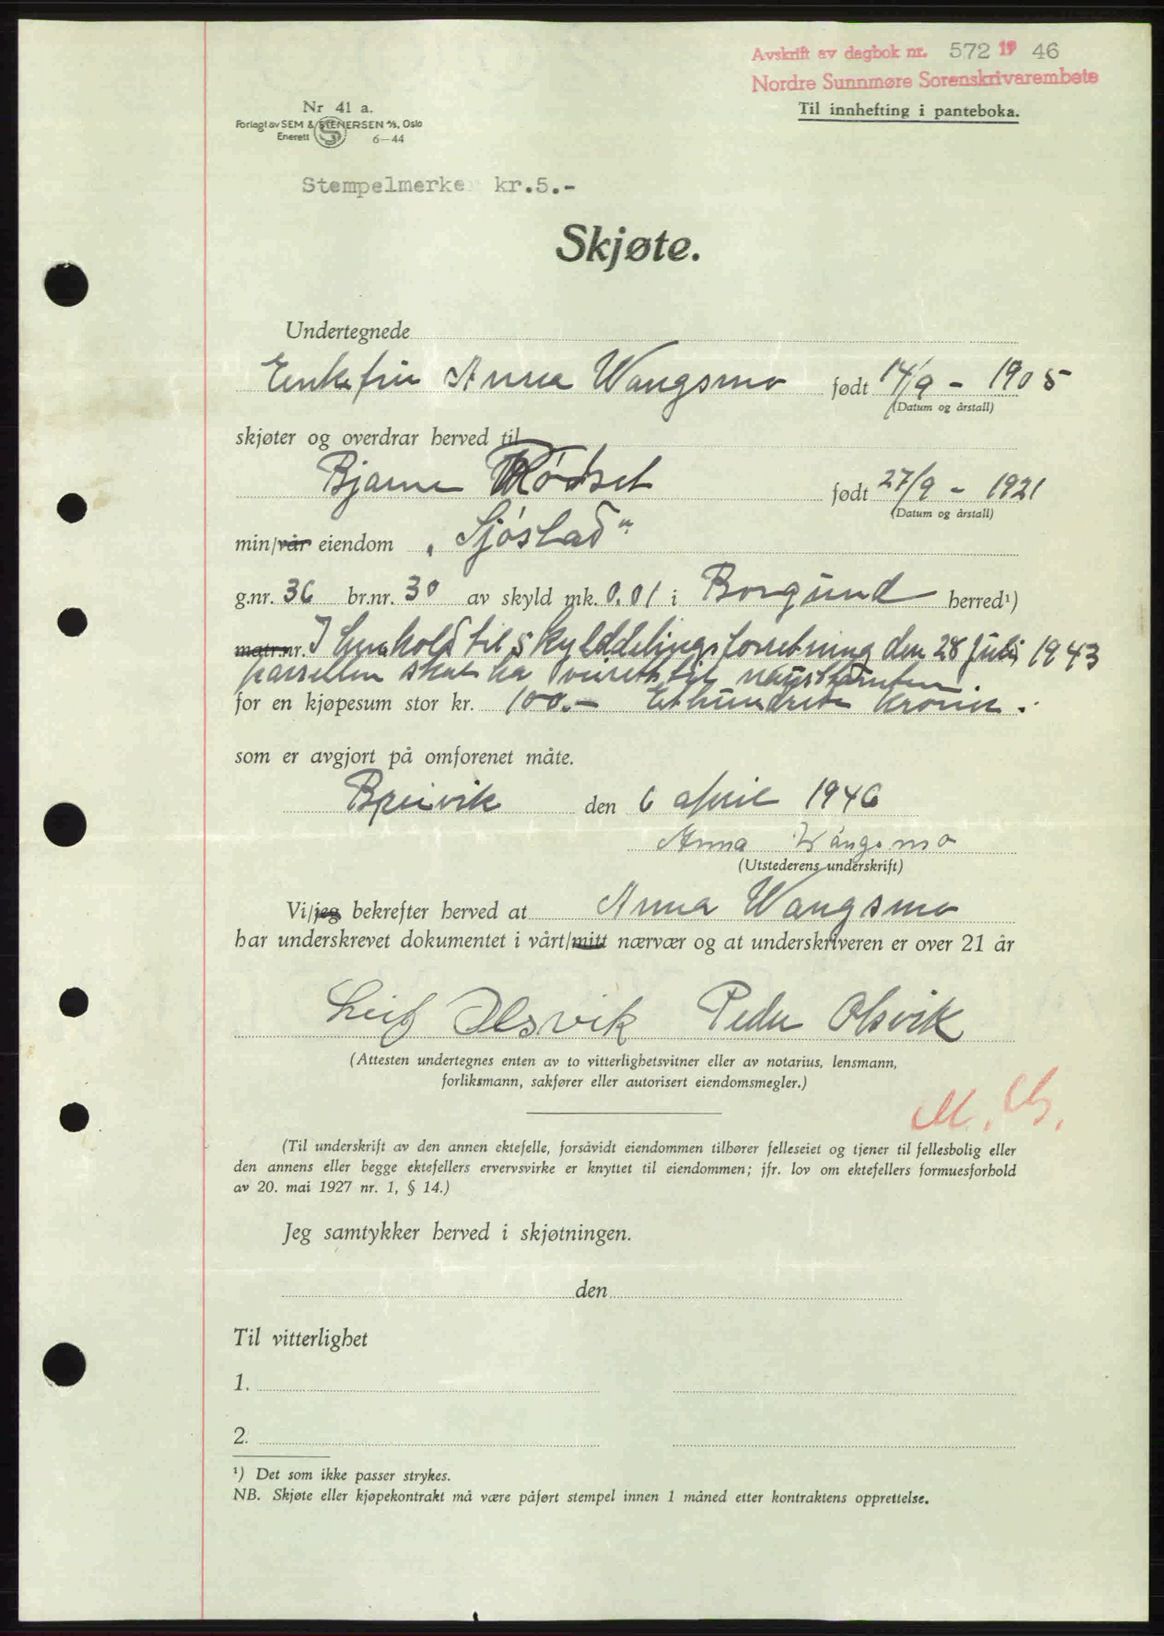 Avskrift av dagbok nr. 572 19 46
Nordre Sunnmøre Sorenskrivarembete
Til innhefting i panteboka.
Nr 41 a.
Forlagt av SEM & STENERSEN A/S, Oslo
Enerett S 6—44
Stempelmerke kr.5.-
Skjøte.
Undertegnede
Enkefru Anna Wangsmo født 14/9 - 1905
(Datum og årstall)
skjøter og overdrar herved til
Bjarne Rødset født 27/9 - 1921
(Datum og årstall)
min/vår eiendom "Sjøstad"
g.nr. 36 br.nr. 30 av skyld mk. 0.01 i Borgund herred¹)
matr.nr. I henhold til skylddelingsforretning den 28 juli 1943
parsellen skal ha veirett til nausttomten
for en kjøpesum stor kr. 100.- Ethundrede kroner.
som er avgjort på omforenet måte.
Breivik den 6 april 1946
Anna Wangsmo
(Utstederens underskrift)
Vi/jeg bekrefter herved at Anna Wangsmo
har underskrevet dokumentet i vårt/mitt nærvær og at underskriveren er over 21 år
Leif Olsvik Peder Olsvik
(Attesten undertegnes enten av to vitterlighetsvitner eller av notarius, lensmann,
forliksmann, sakfører eller autorisert eiendomsmegler.)
(Til underskrift av den annen ektefelle, forsåvidt eiendommen tilhører felleseiet og tjener til fellesbolig eller
den annens eller begge ektefellers ervervsvirke er knyttet til eiendommen; jfr. lov om ektefellers formuesforhold
av 20. mai 1927 nr. 1, § 14.)
Jeg samtykker herved i skjøtningen.
den
Til vitterlighet
1.
2.
¹) Det som ikke passer strykes.
NB. Skjøte eller kjøpekontrakt må være påført stempel innen 1 måned etter kontraktens opprettelse.